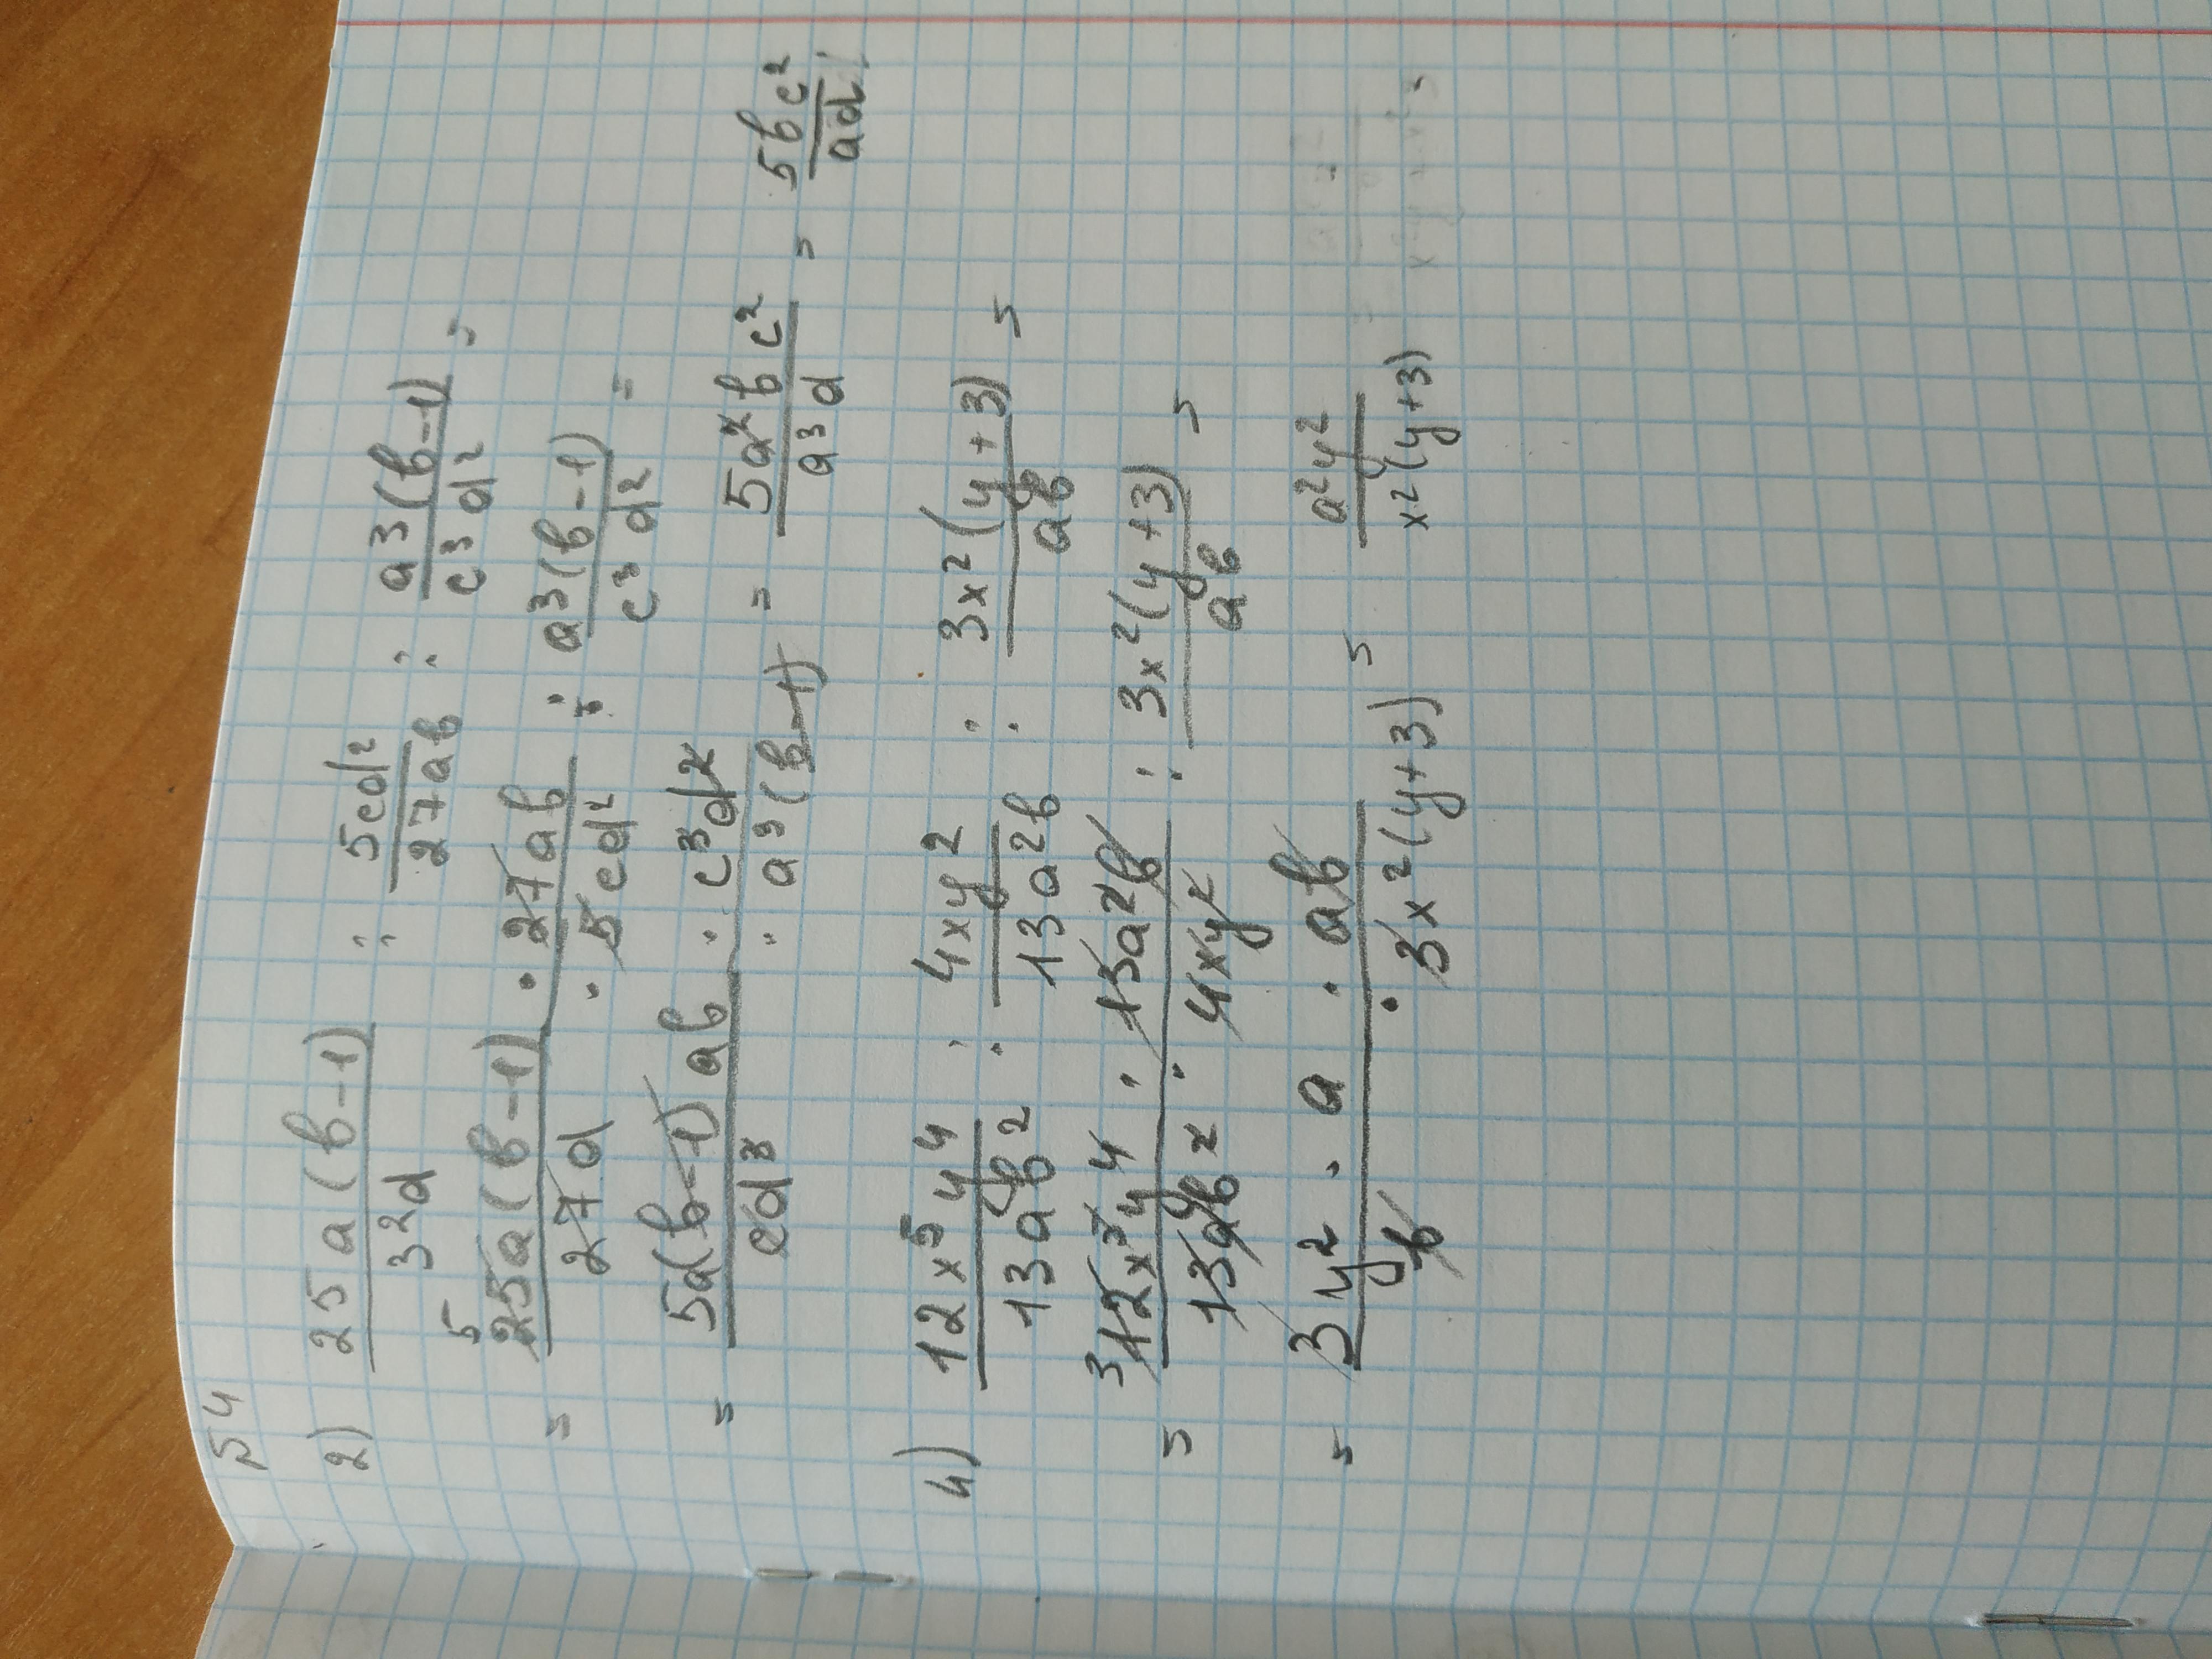 №4
2) 25a(b-1)/3²d : 5cd²/27ab : a³(b-1)/c³d² =
= 5 25a(b-1) · 27ab/27d · 5cd² : a³(b-1)/c³d² =
= 5a(b-1)ab · c³d²/cd³ · a³(b-1) = 5a²bc²/a³d = 5bc²/ad
4) 12x⁵y⁴/13ab² : 4xy²/13a²b : 3x²(y+3)/ab =
= 3 12x⁵y⁴ · 13a²b/13ab² · 4xy² : 3x²(y+3)/ab =
= 3y² · a · ab/b · 3x²(y+3) = a²y²/x²(y+3)